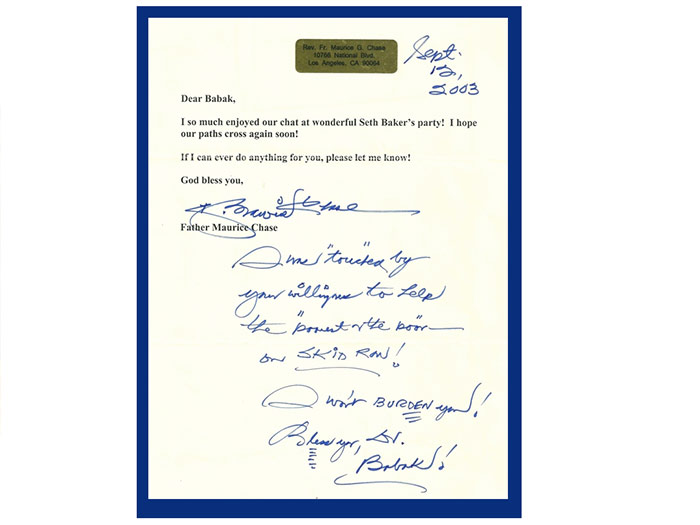 Rev. Fr. Maurice G. Chase
10766 National Blvd.
Los Angeles, CA 90064
Sept.
12,
2003
Dear Babak,
I so much enjoyed our chat at wonderful Seth Baker's party! I hope
our paths cross again soon!
If I can ever do anything for you, please let me know!
God bless you,
Chase
Father Maurice Chase
I was "touched by
your willigness to help
the "poorest of the poor" —
on SKID ROW!
I won't BURDEN you!
Bless you, Dr.
Babak!